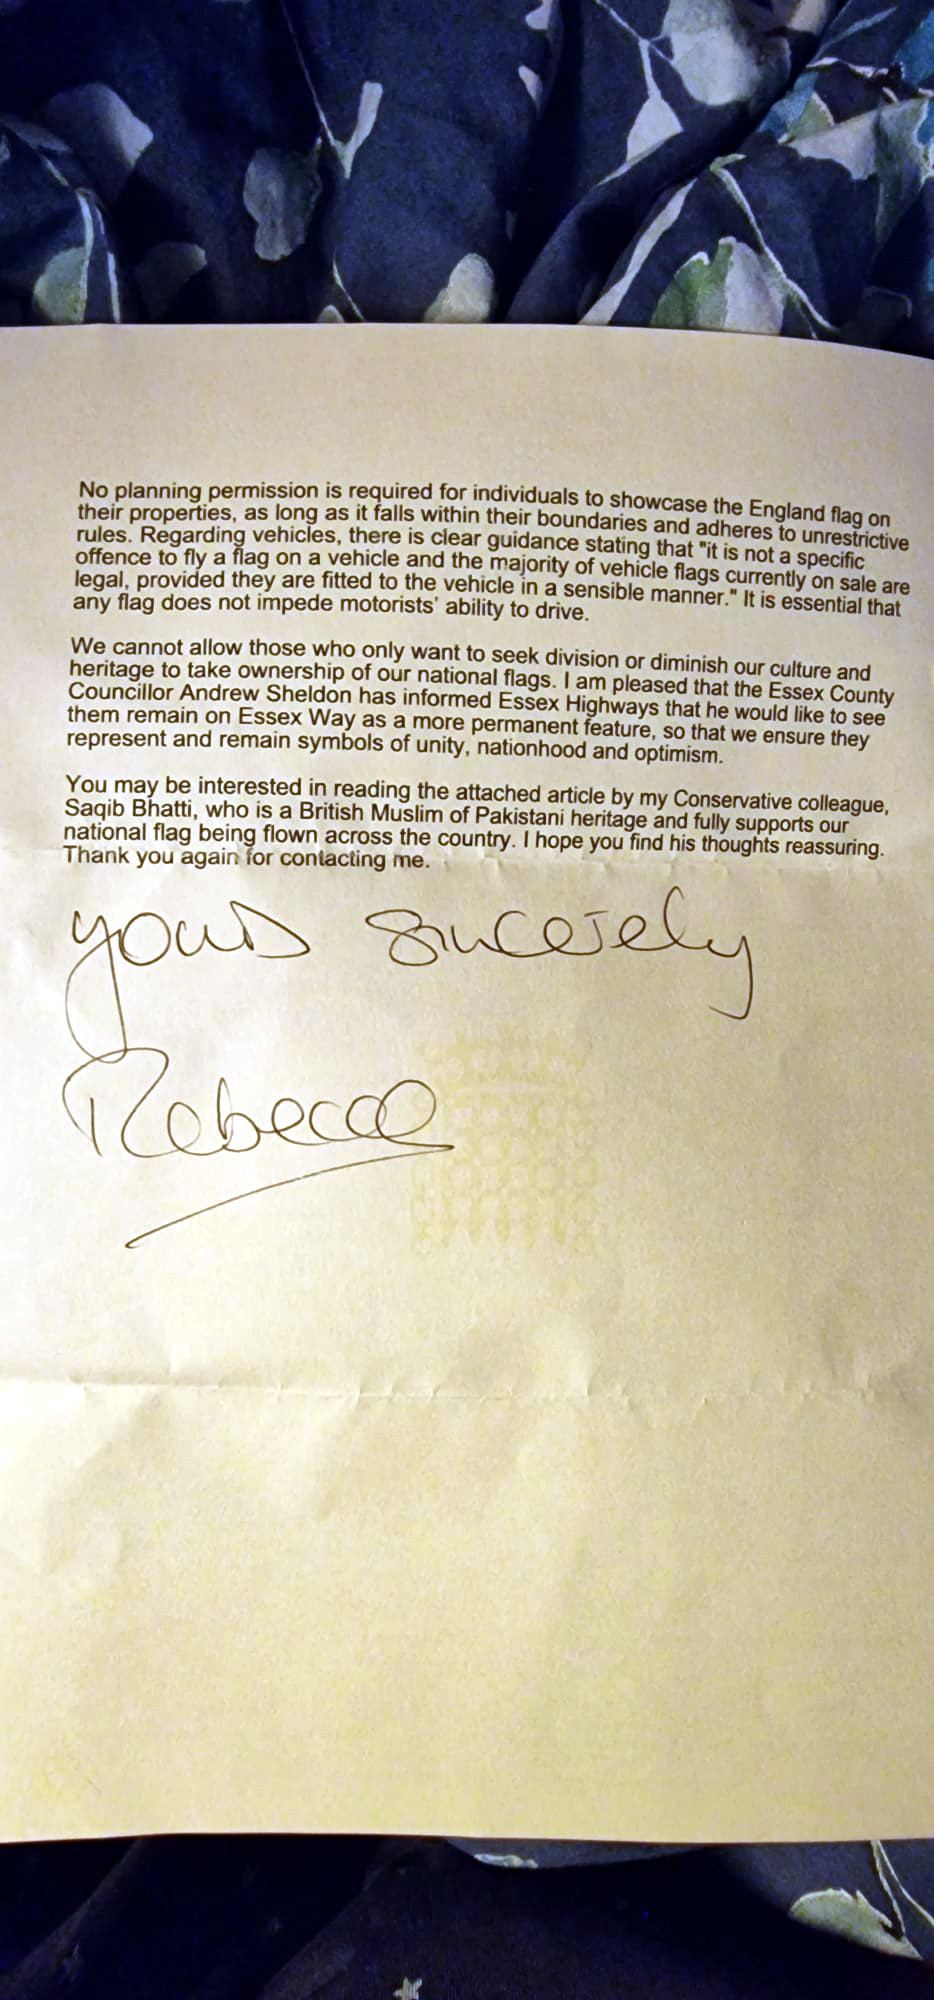 No planning permission is required for individuals to showcase the England flag on
their properties, as long as it falls within their boundaries and adheres to unrestrictive
rules. Regarding vehicles, there is clear guidance stating that "it is not a specific
offence to fly a flag on a vehicle and the majority of vehicle flags currently on sale are
legal, provided they are fitted to the vehicle in a sensible manner." It is essential that
any flag does not impede motorists' ability to drive.
We cannot allow those who only want to seek division or diminish our culture and
heritage to take ownership of our national flags. I am pleased that the Essex County
Councillor Andrew Sheldon has informed Essex Highways that he would like to see
them remain on Essex Way as a more permanent feature, so that we ensure they
represent and remain symbols of unity, nationhood and optimism.
You may be interested in reading the attached article by my Conservative colleague,
Saqib Bhatti, who is a British Muslim of Pakistani heritage and fully supports our
national flag being flown across the country. I hope you find his thoughts reassuring.
Thank you again for contacting me.
yours sincerely
Rebecca